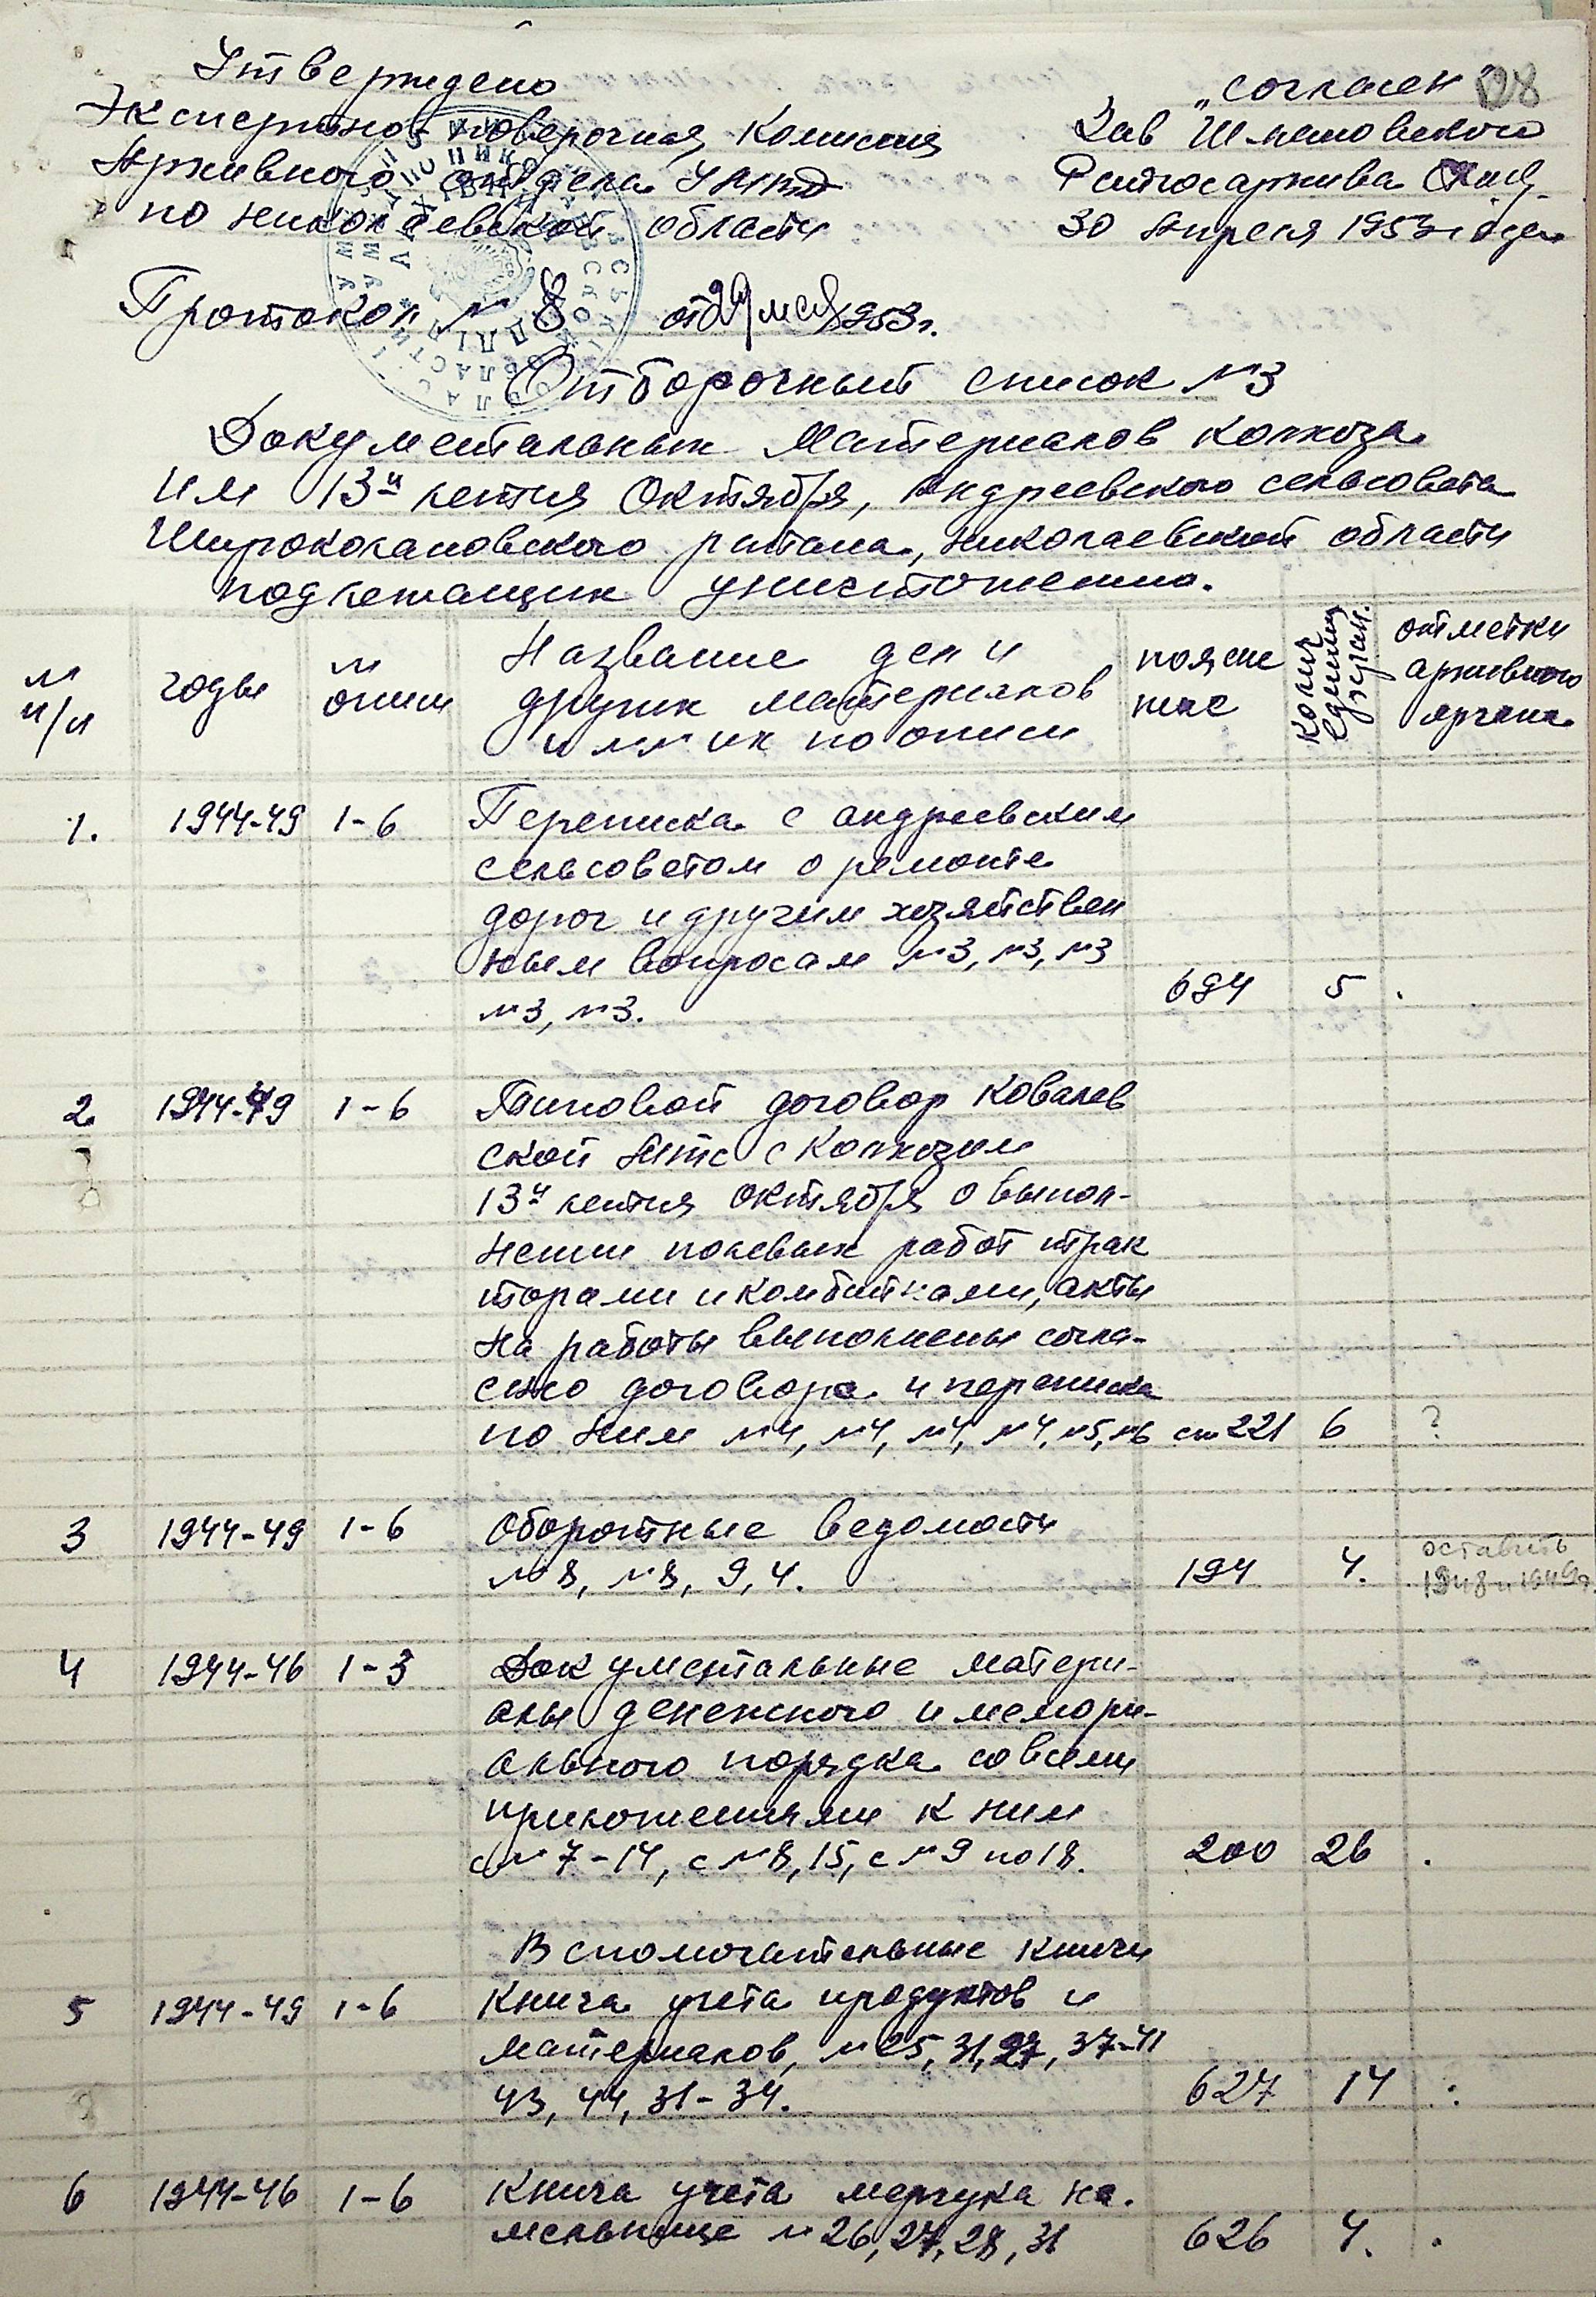 Утверждено
Экспертно-поверочная Комиссия
Архивного отдела УМВД
по николаевской области
Протокол № 8 от 29 мая 1953 г.
„согласен"
Зав Шмановского
Райгосархива
30 Апреля 1953 года
Отборочный список №3
Документальных Материалов колхоза
им 13й летия Октября, Андреевского сельсовета
Широколановского района, николаевской области
подлежащих уничтожению.
№ п/п
годы
№ описи
Название дел и
других материалов
и №№ их по описи
поясне
ние
колич единиц хран.
отметки
архивного
органа
1. 1944-49 1-6 Переписка с андреевским
сельсоветом о ремонте
дорог и другим хозяйствен
ным вопросам №3, №3, №3
№3, №3. 694 5 .
2. 1944-49 1-6 Типовой договор Ковалев
ской Мтс с Колхозом
13й летия октября о выпол-
нении полевых работ трак
торами и комбайнами, акты
на работы выполнены согла-
сно договора и переписка
по ним №4, №4, №4, №4, №5, №6 ст 221 6 ?
3 1944-49 1-6 Оборотные ведомости
№8, №8, 9, 4. 194 4. оставить
1948 и 1949г.
4 1944-46 1-3 Документальные матери-
алы денежного и мемори-
ального порядка со всеми
приложениями к ним
с № 7-14, с №8, 15, с №9 по 18. 200 26 .
Вспомогательные книги
5 1944-49 1-6 Книга учета продуктов и
материалов, №25, 31, 27, 37-41
43, 44, 31-34. 627 14 .
6 1944-46 1-6 Книга учета мерчука на
мельнице № 26, 27, 28, 31 626 4. .